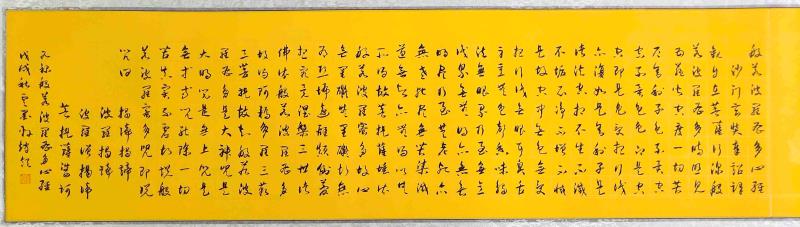 般若波羅蜜多心經
沙門玄奘奉詔譯
觀自在菩薩行深般
若波羅蜜多時照見
五蘊皆空度一切苦
厄舍利子色不異空
空不異色色即是空
空即是色受想行識
亦復如是舍利子是
諸法空相不生不滅
不垢不淨不增不減
是故空中無色無受
想行識無眼耳鼻舌
身意無色聲香味觸
法無眼界乃至無意
識界無無明亦無無
明盡乃至無老死亦
無老死盡無苦集滅
道無智亦無得以無
所得故菩提薩埵依
般若波羅蜜多故心
無罣礙無罣礙故無
有恐怖遠離顛倒夢
想究竟涅槃三世諸
佛依般若波羅蜜多
故得阿耨多羅三藐
三菩提故知般若波
羅蜜多是大神咒是
大明咒是無上咒是
無等等咒能除一切
苦真實不虛故說般
若波羅蜜多咒即說
咒曰
揭諦揭諦
波羅揭諦
波羅僧揭諦
菩提薩婆訶
般若波羅蜜多心經
戊戌秋